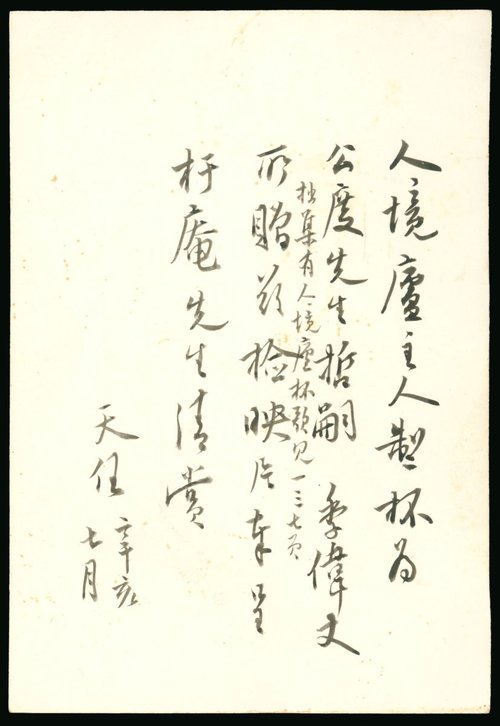 人境廬主人製杯為
公度先生哲嗣 季偉丈
拙集有人境廬杯歌見一三七頁
所贈茲檢映片奉呈
杅庵先生清賞
天任
辛亥
七月